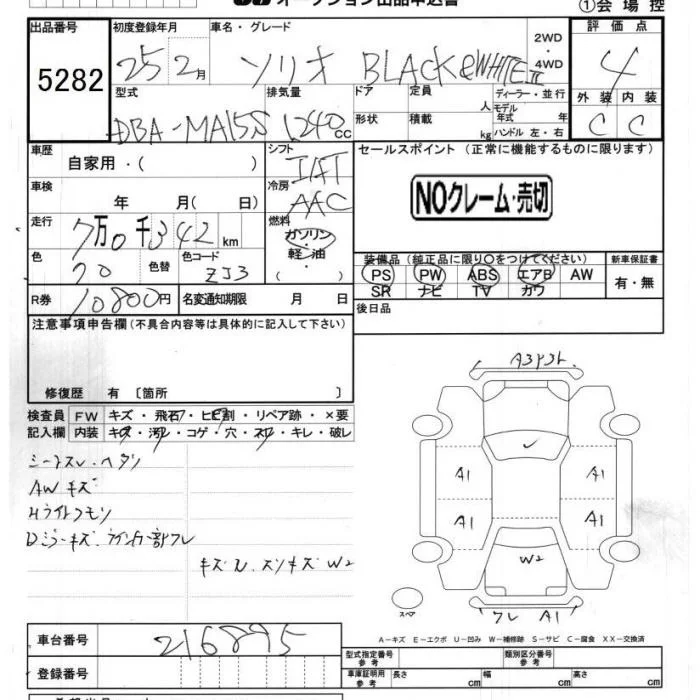 オークション出品申込書
①会場控
出品番号 5282
初度登録年月 25年2月
車名・グレード ソリオ BLACK&WHITE II
2WD・4WD
評価点 4
外装 C 内装 C
型式 DBA-MA15S
排気量 1240cc
ドア 形状
定員 人
積載 kg
ディーラー・並行
モデル年式 年
ハンドル 左・右
車歴 自家用・( )
シフト IAT
セールスポイント (正常に機能するものに限ります)
NOクレーム・売切
車検 年 月( 日)
冷房 AAC
走行 7万0千342km
燃料 ガソリン・軽油・( )
色 クロ 色替 色コード ZJ3
装備品 (純正品に限り○をつけてください)
PS PW ABS エアB AW
SR ナビ TV カワ
新車保証書 有・無
R券 10800円
名変通知期限 月 日
後日品
注意事項申告欄 (不具合内容等は具体的に記入して下さい)
修復歴 有 〔箇所 〕
検査員記入欄
FW キズ・飛石・ヒビ割・リペア跡・×要
内装 キズ・汚れ・コゲ・穴・スレ・キレ・破レ
シートスレ・ヘタリ
AWキズ
Hライトクモリ
キズ凹、スリキズ W2
A3 Y3
A1 A1
A1 A1
W2
ワレ A1
スペア
A-キズ E-エクボ U-凹み W-補修跡 S-サビ C-腐食 XX-交換済
車台番号 216895
登録番号
型式指定番号 参考
類別区分番号 参考
車庫証明用 参考 長さ cm 幅 cm 高さ cm